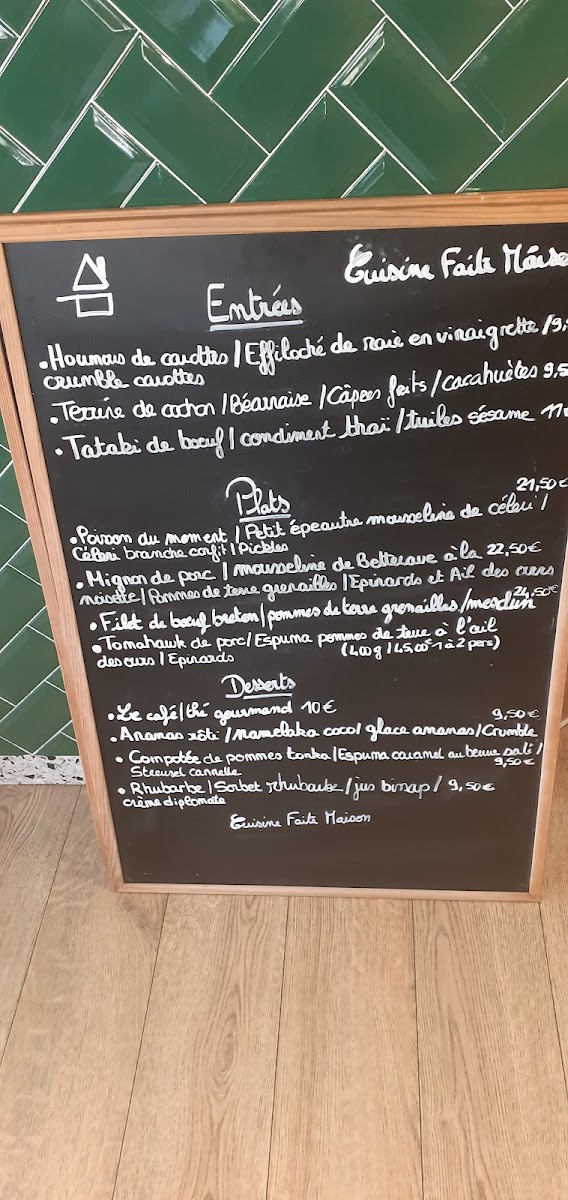 Cuisine Faite Maiso
Entrées
• Houmous de carottes / Effiloché de raie en vinaigrette / 9,
crumble carottes
• Terrine de cochon / Béarnaise / Câpres frits / cacahuètes 9,5
• Tataki de boeuf / condiment thaï / tuiles sésame 11
Plats
21,50€
• Poisson du moment / Petit épeautre mousseline de céleri /
Céleri branche confit / Pickles
• Mignon de porc / mousseline de Betterave à la 22,50€
noisette / Pommes de terre grenailles / Epinards et Ail des ours
24,50€
• Filet de boeuf breton / pommes de terre grenailles / mesclun
• Tomahawk de porc / Espuma pommes de terre à l'ail
des ours / Epinards (400g / 45,00€ 1 à 2 pers)
Desserts
• Le café / thé gourmand 10€
9,50€
• Ananas rôti / namelaka coco / glace ananas / Crumble
• Compotée de pommes tonka / Espuma caramel au beurre salé /
Streusel cannelle 9,50€
• Rhubarbe / Sorbet rhubarbe / jus bissap / 9,50€
crème diplomate
Cuisine Faite Maison